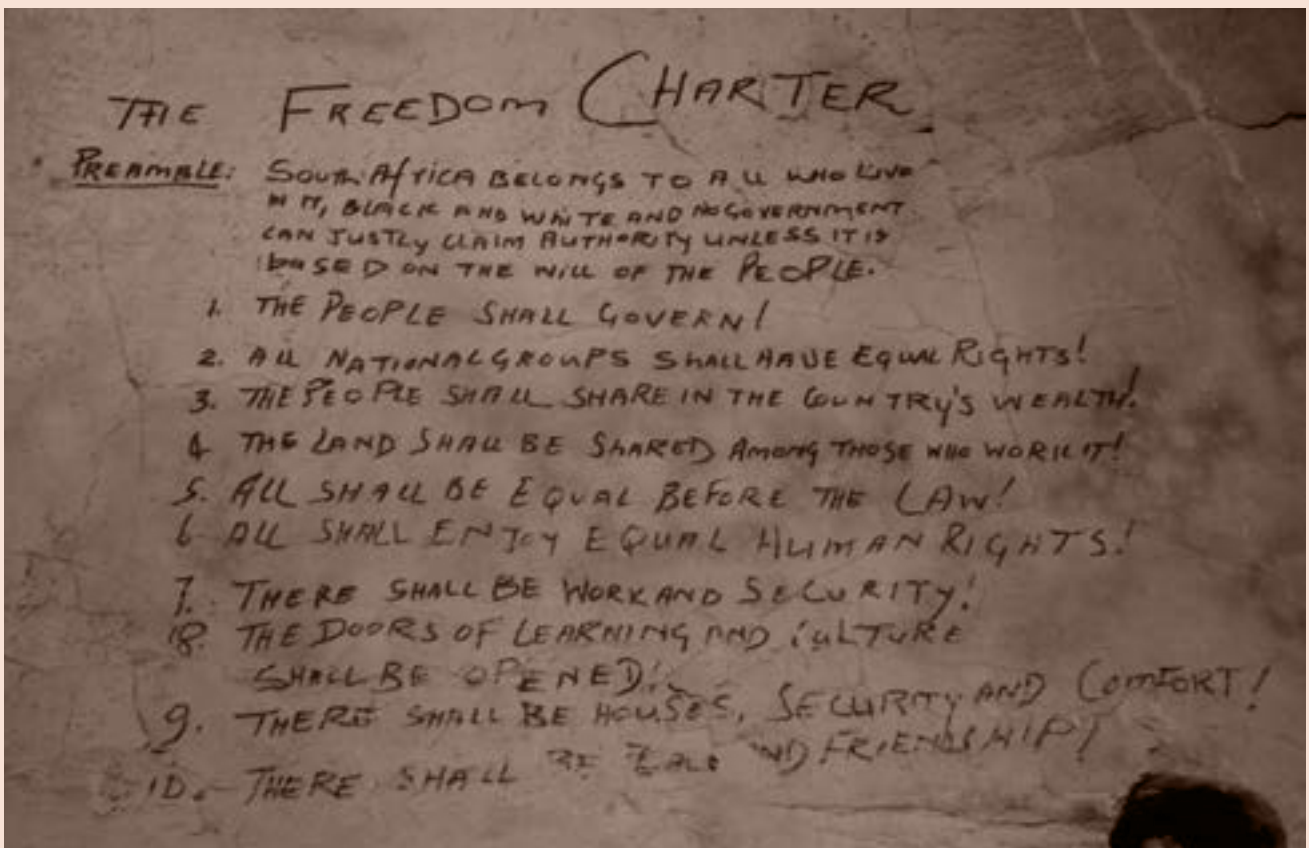 THE FREEDOM CHARTER
PREAMBLE: SOUTH AfRICA BELONGS TO ALL WHO LIVE
IN IT, BLACK AND WHITE AND NO GOVERNMENT
CAN JUSTLY CLAIM AUTHORITY UNLESS IT IS
bASED ON THE WILL OF THE PEOPLE.
1. THE PEOPLE SHALL GOVERN!
2. ALL NATIONAL GROUPS SHALL HAVE EQUAL RIGHTS!
3. THE PEOPLE SHALL SHARE IN THE COUNTRY'S WEALTH!
4 THE LAND SHALL BE SHARED AMONG THOSE WHO WORK IT!
5. ALL SHALL BE EQUAL BEFORE THE LAW!
6 ALL SHALL ENJOY EQUAL HUMAN RIGHTS!
7. THERE SHALL BE WORK AND SECURITY!
8. THE DOORS OF LEARNING AND CULTURE
SHALL BE OPENED!
9. THERE SHALL BE HOUSES, SECURITY AND COMFORT!
10. THERE SHALL BE AND FRIENDSHIP!